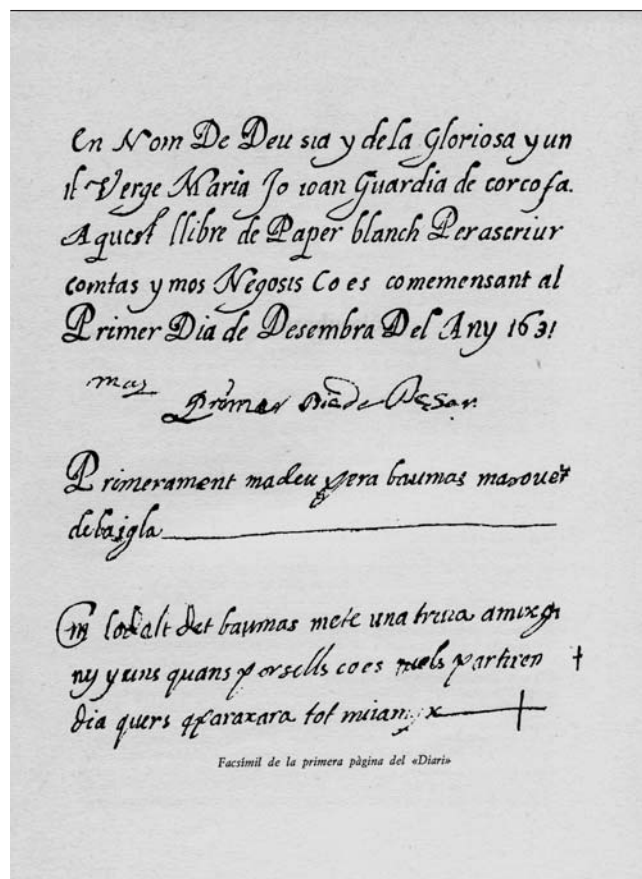 En Nom De Deu sia y dela Gloriosa y un
il Verge Maria Jo ioan Guardia de corcofa.
Aquest llibre de Paper blanch Perascriur
comtas y mos Negosis Co es comemensant al
Primer Dia de Desembra Del Any 1631
mas Primer Dia de
Primerament madeu pera baumas masover
debaigla
lodalt det baumas mete una truia amixgi
ny y uns quans porsells co es partiren
dia quers qparaxara tot
Facsímil de la primera pàgina del «Diari»